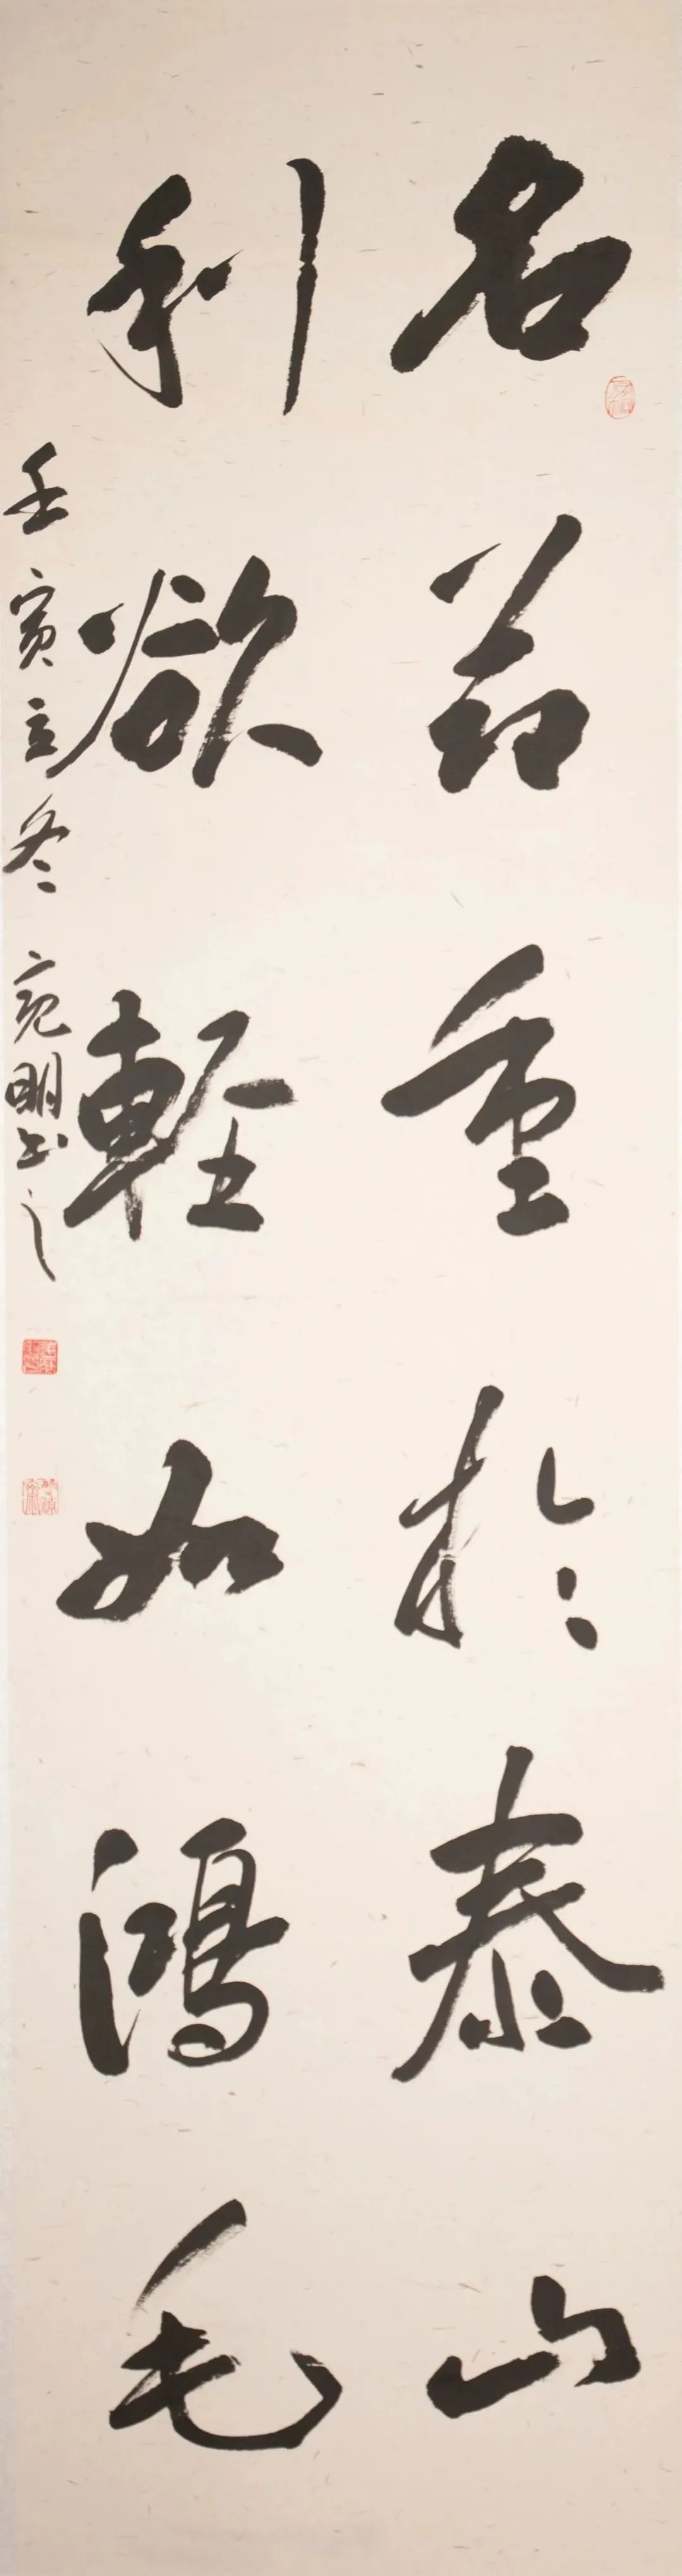 名節重於泰山
利欲輕如鴻毛
壬寅立冬 亮明书之